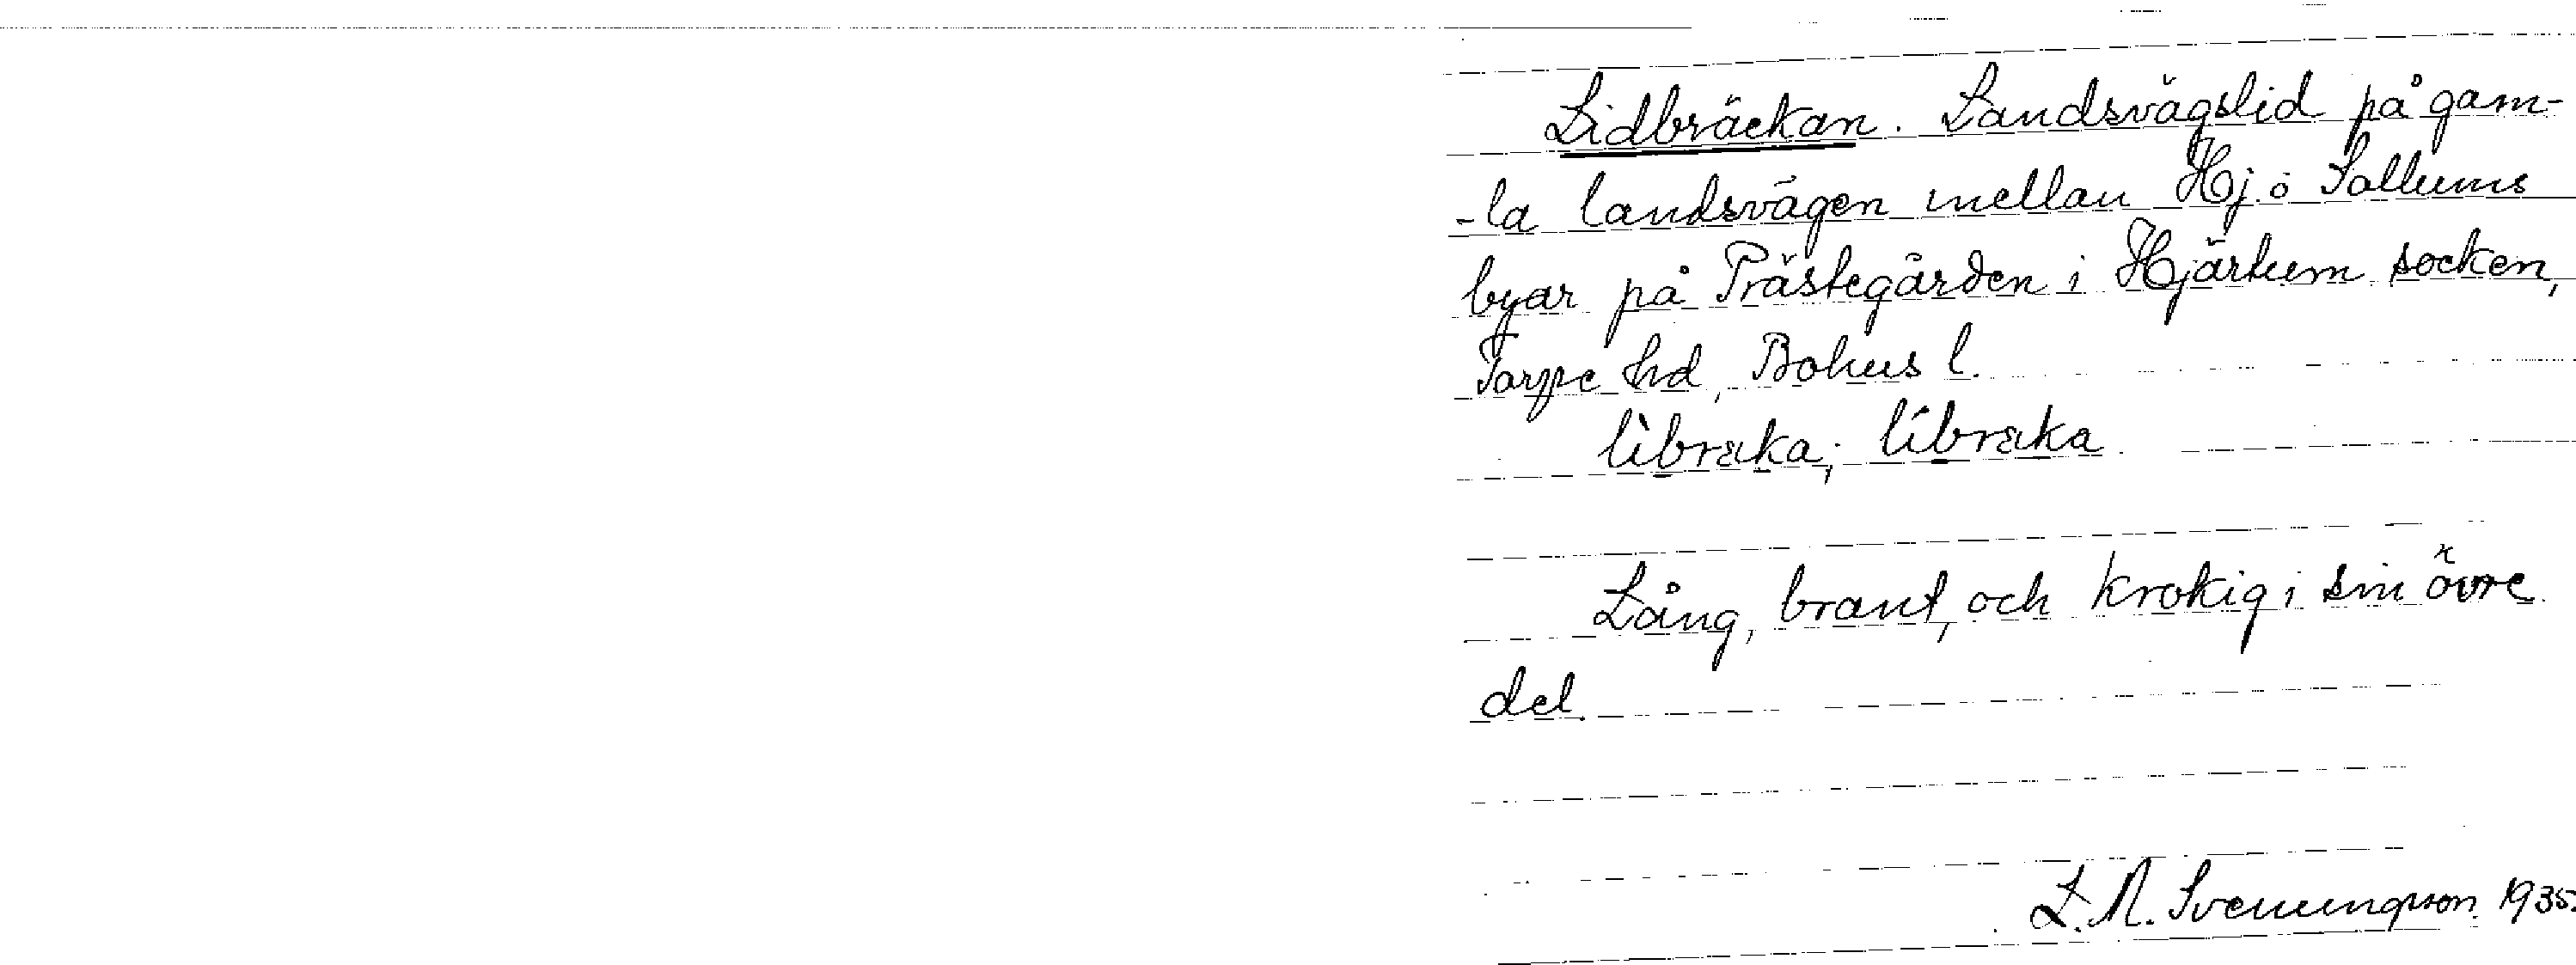 Lidbräckan. Landsvägslid på gam-
-la landsvägen mellan Hj. o Sollums
byar på Prästegården i Hjärtum socken,
Torpe hd, Bohus l.
lìbræka; líbræka
Lång, brant, och krokig i sin övre
del.
L. M. Svenungsson 1935.